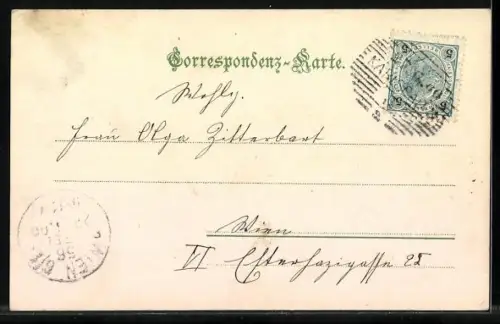 Correspondenz-Karte.
Wohlg.
Frau Olga Zitterbart
Wien
VI Esterhazigasse 25
5 5
5 5
WIEN